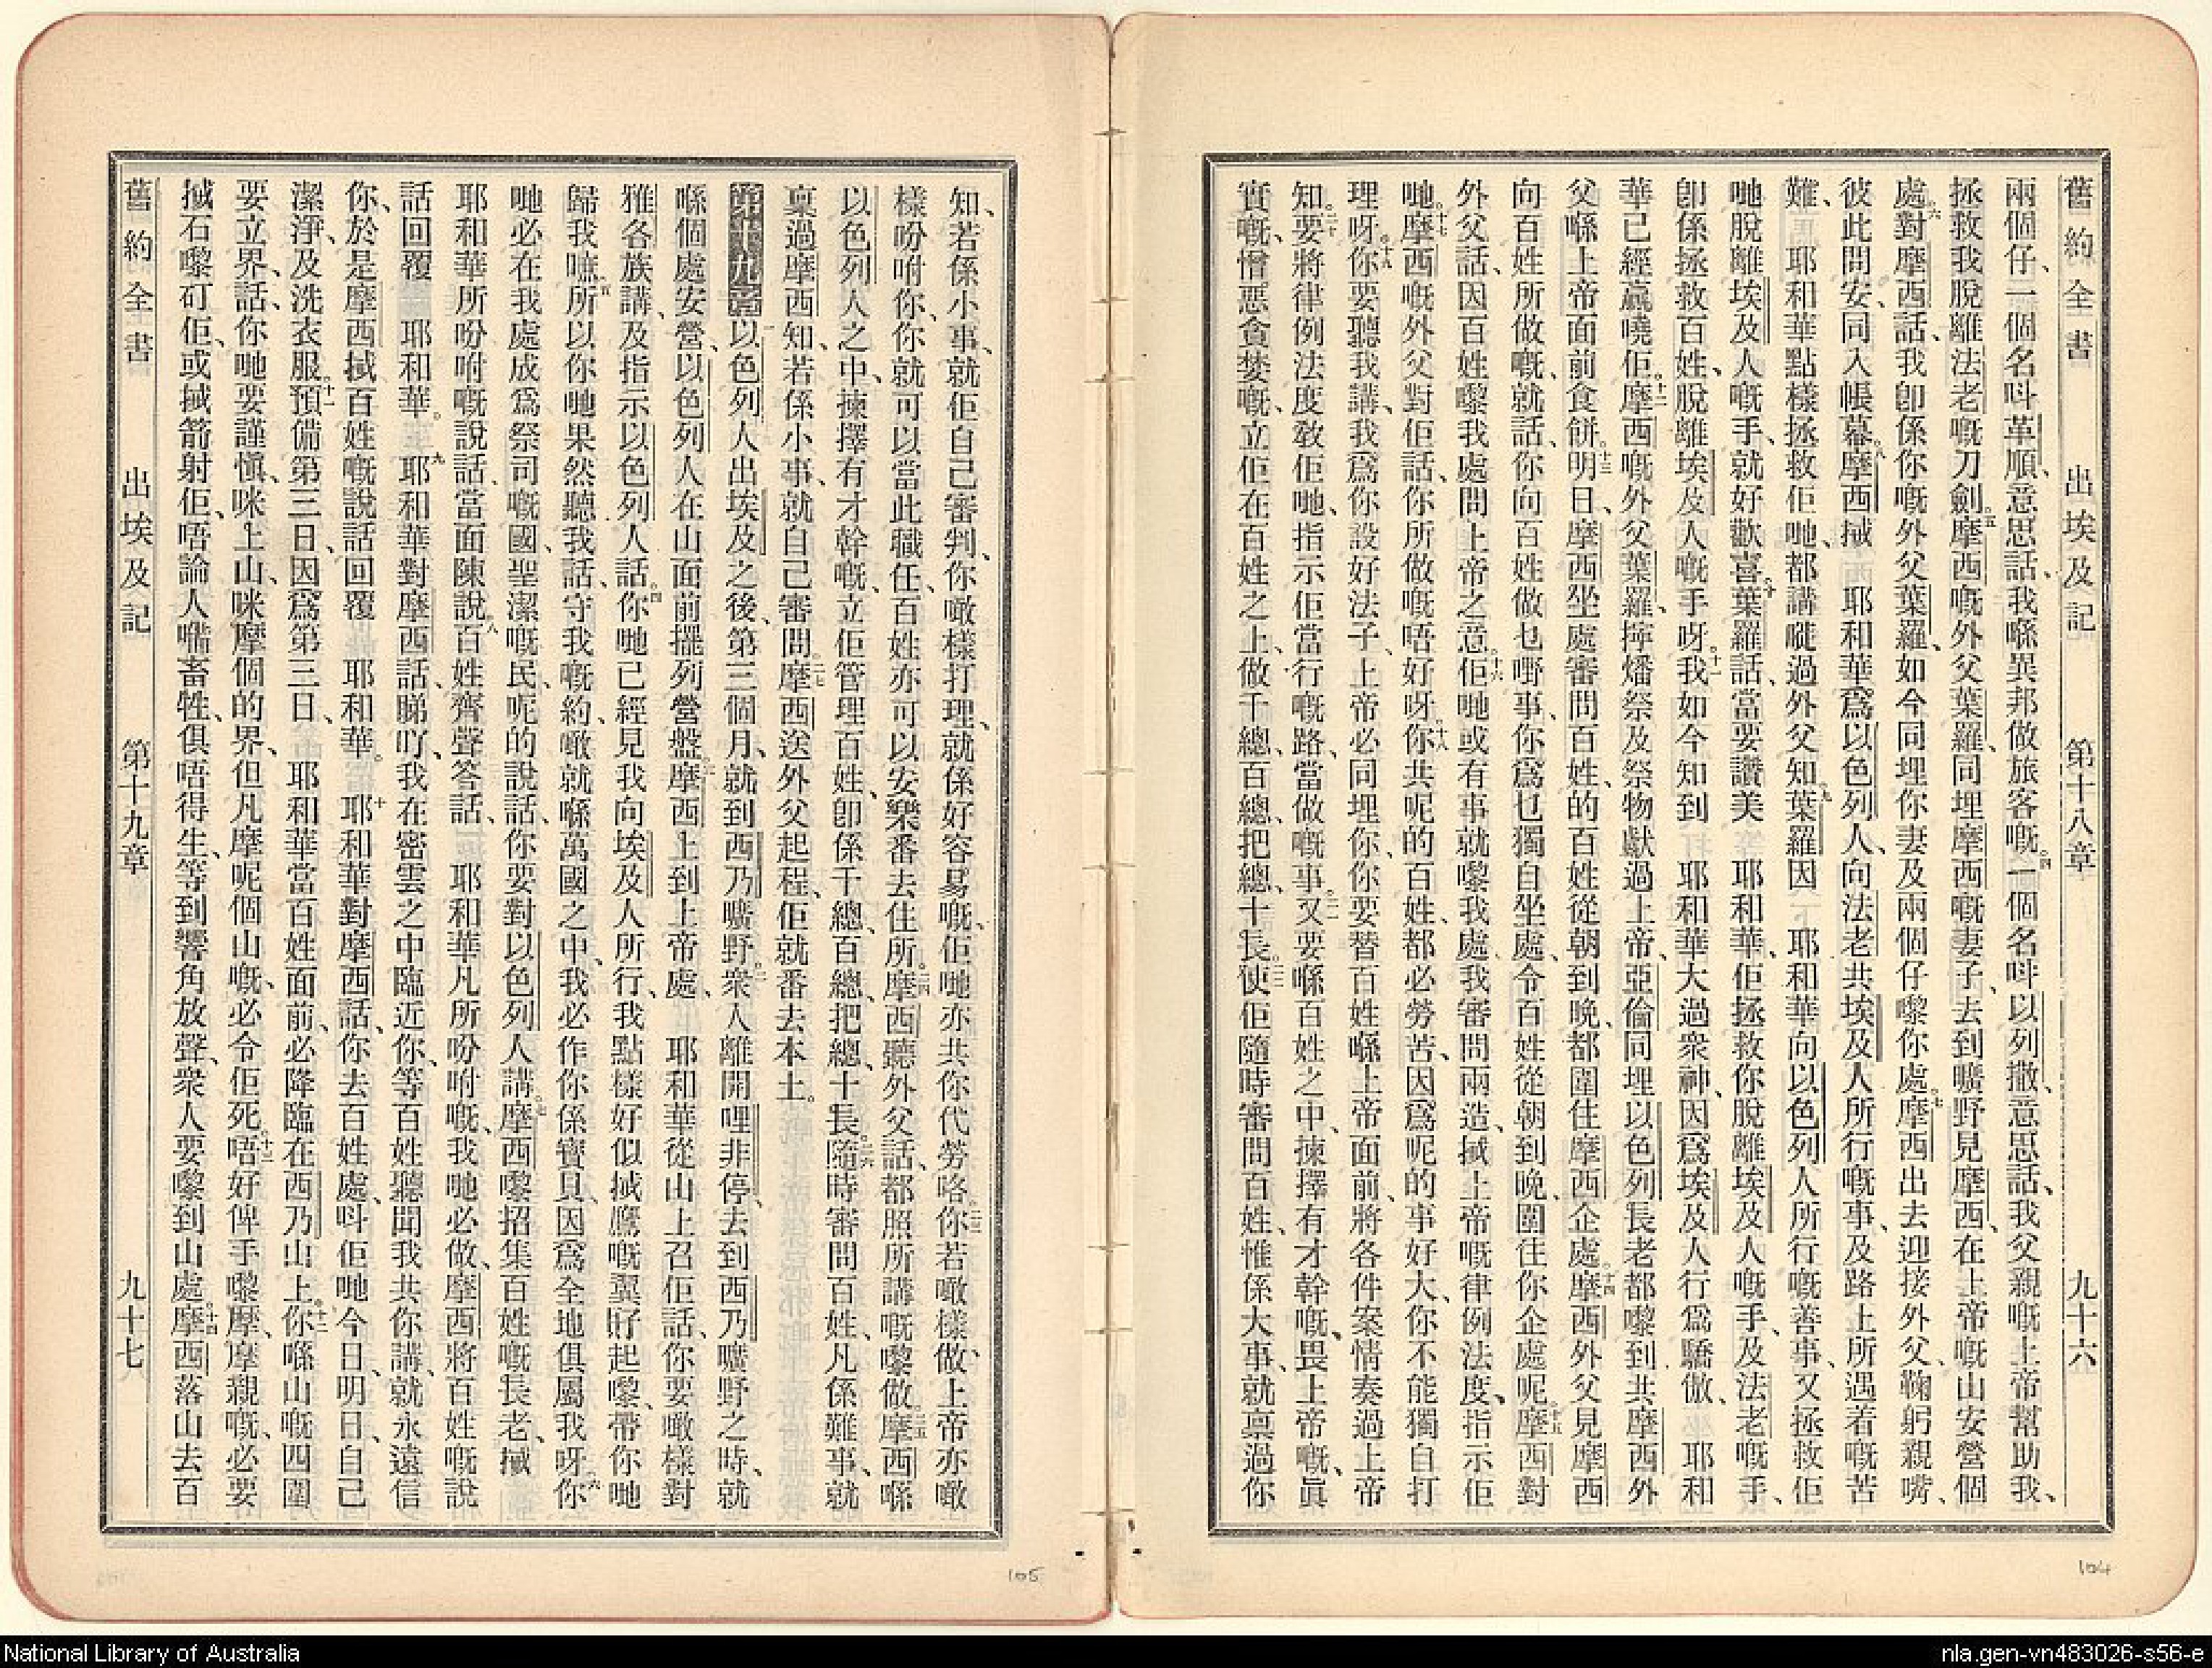 舊約全書 出埃及記 第十八章 九十六
兩個仔、一個名呌革順、意思話、我喺異邦做旅客嘅。四一個名呌以列撒、意思話、我父親嘅上帝幫助我、
拯救我脫離法老嘅刀劍。五摩西嘅外父葉羅、同埋摩西嘅妻子、去到曠野見摩西、在上帝嘅山安營個
處。六對摩西話、我卽係你嘅外父葉羅、如今同埋你妻及兩個仔嚟你處。七摩西出去迎接外父、鞠躬親嘴、
彼此問安、同入帳幕。八摩西摵 耶和華爲以色列人、向法老共埃及人所行嘅事、及路上所遇着嘅苦
難、 耶和華點樣拯救佢哋、都講嘥過外父知。九葉羅因 耶和華向以色列人所行嘅善事、又拯救佢
哋脫離埃及人嘅手、就好歡喜。十葉羅話、當要讚美 耶和華、佢拯救你脫離埃及人嘅手、及法老嘅手、
卽係拯救百姓、脫離埃及人嘅手呀。十一我如今知到 耶和華大過衆神、因爲埃及人行爲驕傲、 耶和
華已經贏嘵佢。十二摩西嘅外父葉羅、擰燔祭及祭物獻過上帝、亞倫同埋以色列長老都嚟到共摩西外
父喺上帝面前食餅。十三明日、摩西坐處審問百姓、的百姓從朝到晚、都圍住摩西企處。十四摩西外父見摩西
向百姓所做嘅、就話、你向百姓做乜嘢事、你爲乜獨自坐處、令百姓從朝到晚、圍住你企處呢。十五摩西對
外父話、因百姓嚟我處問上帝之意。十六佢哋或有事就嚟我處、我審問兩造、摵上帝嘅律例法度、指示佢
哋。十七摩西嘅外父對佢話、你所做嘅唔好呀。十八你共呢的百姓、都必勞苦、因爲呢的事好大、你不能獨自打
理呀。十九你要聽我講、我爲你設好法子、上帝必同埋你、你要替百姓喺上帝面前、將各件案情奏過上帝
知。二十要將律例法度敎佢哋、指示佢當行嘅路、當做嘅事。二一又要喺百姓之中、揀擇有才幹嘅、畏上帝嘅、眞
實嘅、憎惡貪婪嘅、立佢在百姓之上、做千總、百總、把總、十長。二二使佢隨時審問百姓、惟係大事、就稟過你
104
知、若係小事、就佢自己審判、你噉樣打理、就係好容易嘅、佢哋亦共你代勞咯。二三你若噉樣做、上帝亦噉
樣吩咐你、你就可以當此職任、百姓亦可以安樂番去住所。二四摩西聽外父話、都照所講嘅嚟做。二五摩西喺
以色列人之中、揀擇有才幹嘅、立佢管理百姓、卽係千總、百總、把總、十長。二六隨時審問百姓、凡係難事、就
稟過摩西知、若係小事、就自己審問。二七摩西送外父起程、佢就番去本土。
第十九章 一以色列人出埃及之後、第三個月、就到西乃曠野。二衆人離開哩非停、去到西乃曠野之時、就
喺個處安營、以色列人在山面前擺列營盤。三摩西上到上帝處、 耶和華從山上召佢話、你要噉樣對
雅各族講、及指示以色列人話。四你哋已經見我向埃及人所行、我點樣好似摵鷹嘅翼孖起嚟、帶你哋
歸我嚤。五所以你哋果然聽我話、守我嘅約、噉就喺萬國之中、我必作你係寶貝、因爲全地俱屬我呀。六你
哋必在我處成爲祭司嘅國、聖潔嘅民、呢的說話、你要對以色列人講。七摩西嚟招集百姓嘅長老、摵
耶和華所吩咐嘅說話、當面陳說。八百姓齊聲答話、 耶和華凡所吩咐嘅、我哋必做、摩西將百姓嘅說
話回覆 耶和華。九耶和華對摩西話、睇吖、我在密雲之中臨近你、等百姓聽聞我共你講、就永遠信
你、於是摩西摵百姓嘅說話回覆 耶和華。十耶和華對摩西話、你去百姓處、呌佢哋今日、明日、自己
潔淨、及洗衣服。十一預備第三日、因爲第三日、 耶和華當百姓面前、必降臨在西乃山上。十二你喺山嘅四圍
要立界、話、你哋要謹愼、咪上山、咪摩個的界、但凡摩呢個山嘅、必令佢死。十三唔好俾手嚟摩、摩親嘅、必要
摵石嚟矴佢、或摵箭射佢、唔論人啱畜牲、俱唔得生、等到響角放聲、衆人要嚟到山處。十四摩西落山去百
舊約全書 出埃及記 第十九章 九十七
105
National Library of Australia
nla.gen-vn483026-s56-e